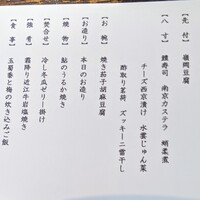 【先付】 嶺岡豆腐
【八寸】 鱧寿司 南京カステラ 蛸柔煮
チーズ西京漬け 水雲じゅん菜
酢取り茗荷 ズッキーニ雷干し
【お椀】 焼き茄子胡麻豆腐
【お造り】 本日のお造り
【焼物】 鮎のうるか焼き
【焚合せ】 冷し冬瓜ゼリー掛け
【強肴】 霜降り近江牛岩塩焼き
【食事】 玉蜀黍と梅の炊き込みご飯